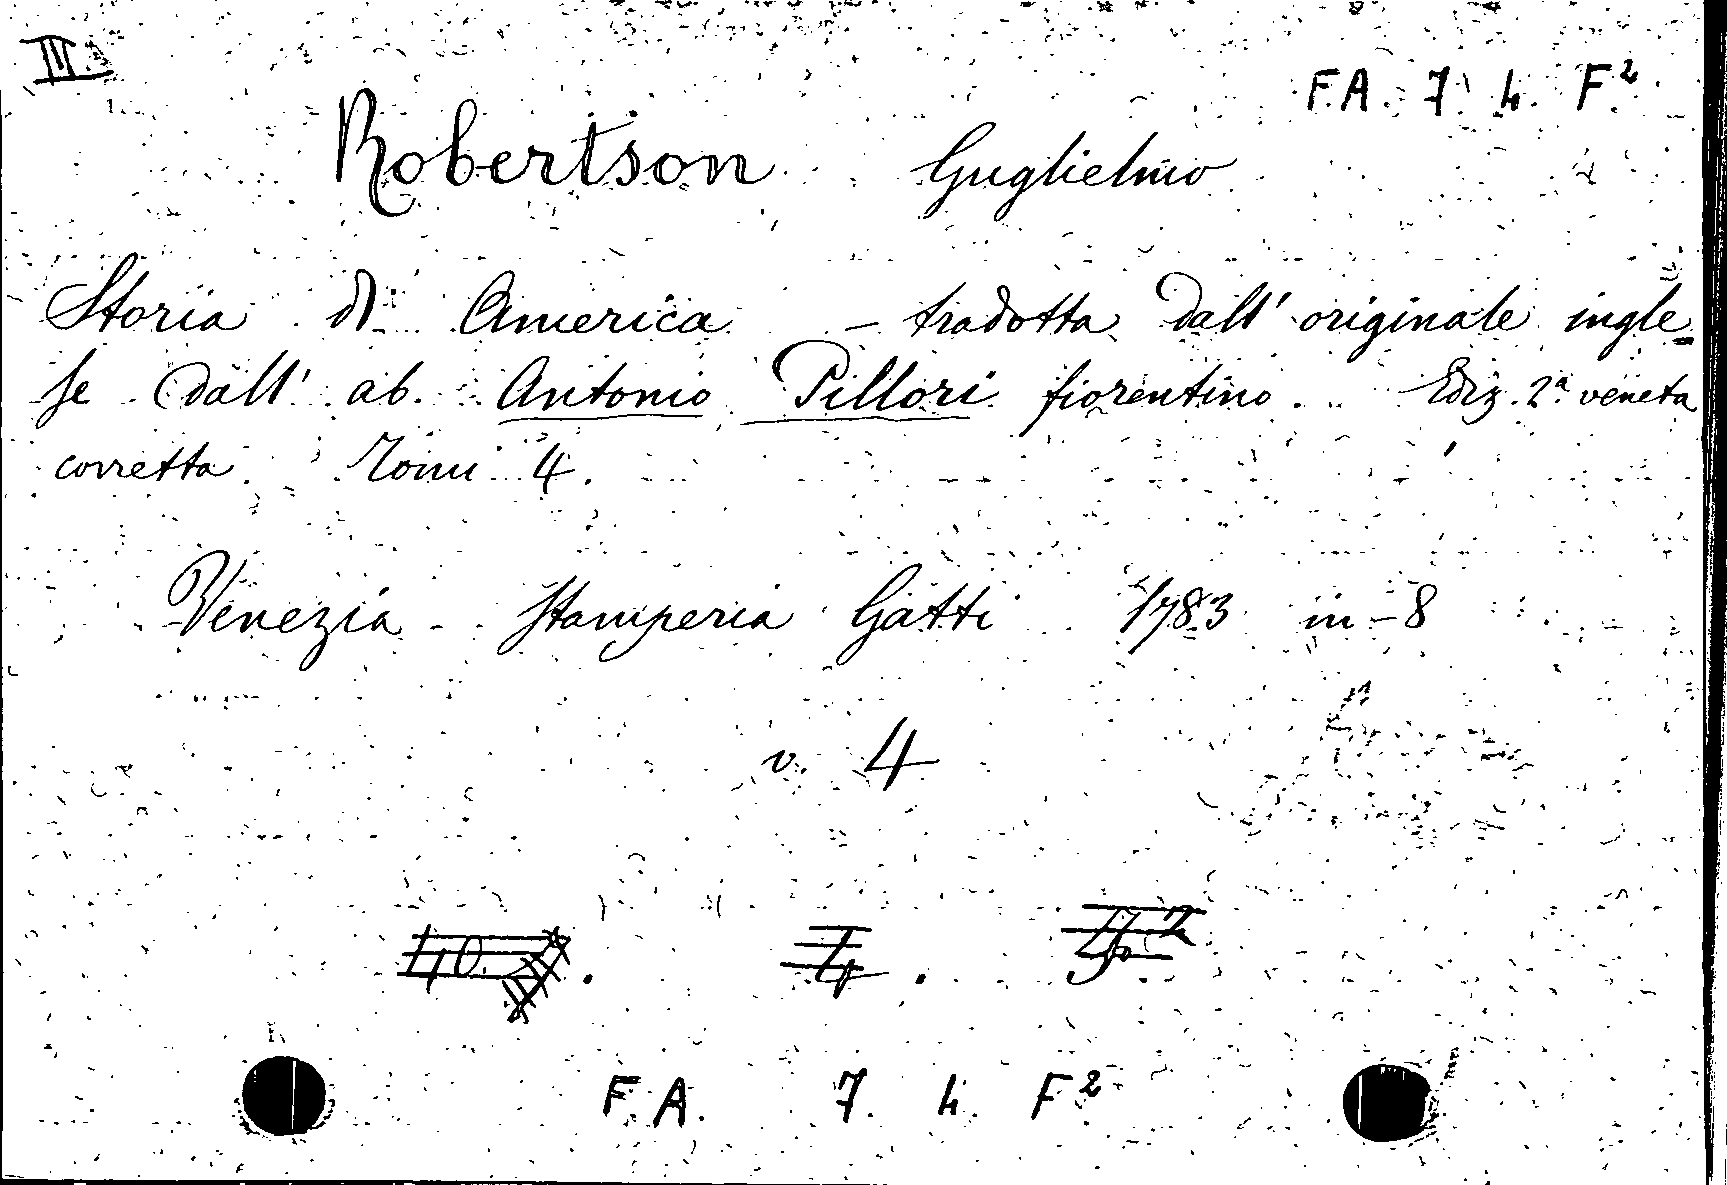 III
F.A. 7 4. F²
Robertson Guglielmo
Storia di America - tradotta dall' originale ingle
se dall' ab. Antonio Pillori fiorentino. Ediz. 2ª veneta
corretta. Tomi 4.
Venezia - Stamperia Gatti 1783 in-8
v. 4
F.A. 7. 4. F²